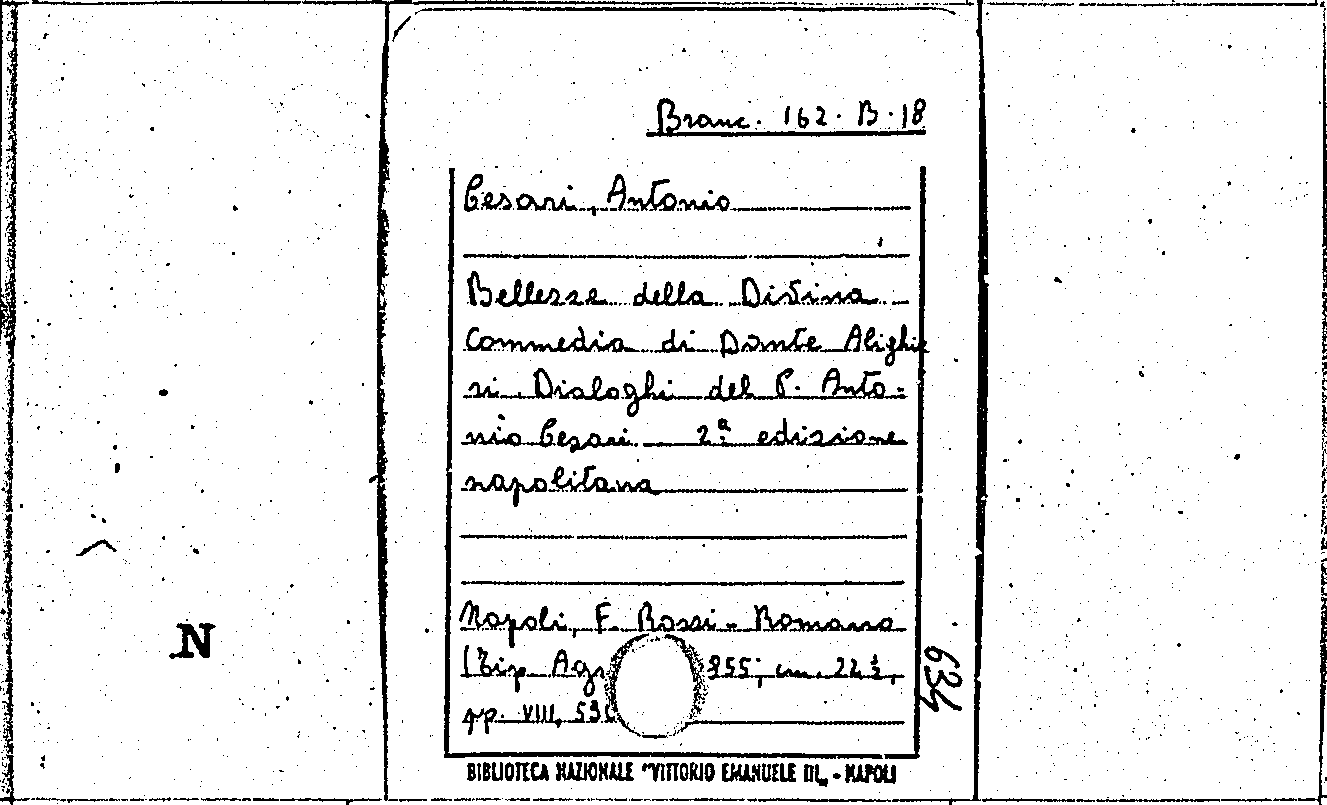 Branc. 162. B. 18
Cesari, Antonio
Bellezze della Divina
Commedia di Dante Alighie
ri. Dialoghi del P. Anto=
nio Cesari. 2ª edizione
napolitana
Napoli, F. Rossi-Romano
(Tip. Ag 855; cm. 22½,
pp. VIII, 59
634
N
BIBLIOTECA NAZIONALE "VITTORIO EMANUELE III„ - NAPOLI